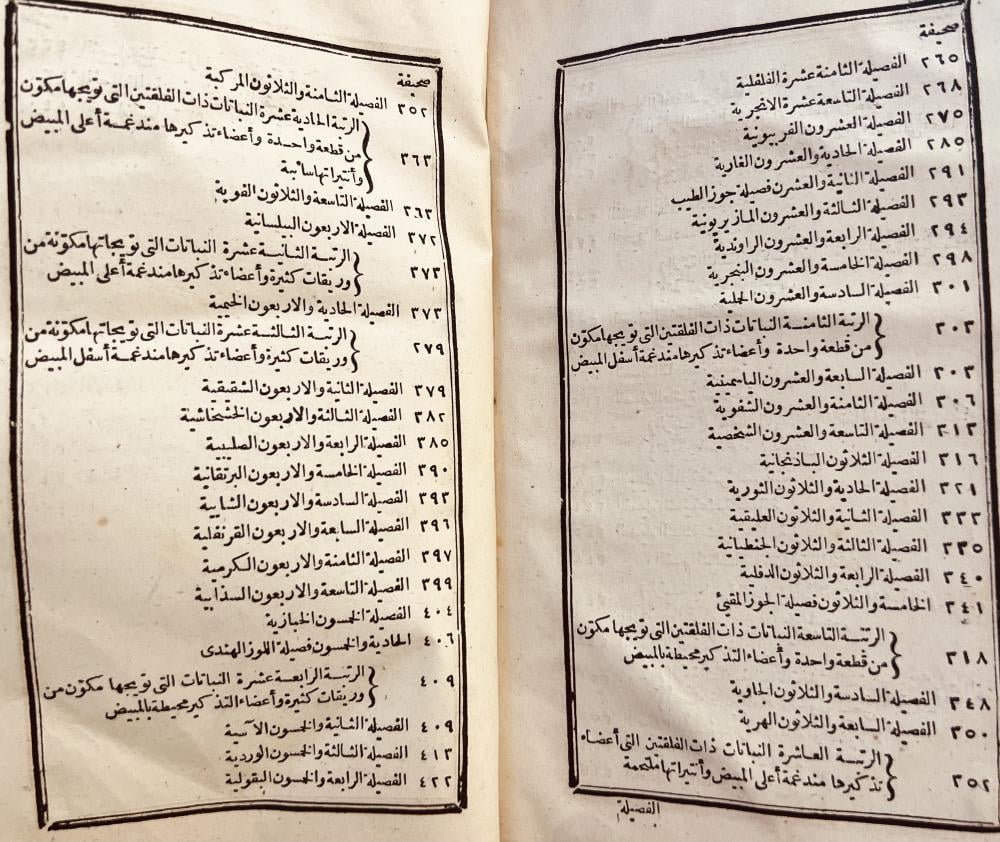 صحيفة
٢٦٥ الفصيلة الثامنة عشرة الفلفلية
٢٦٨ الفصيلة التاسعة عشرة الانجرية
٢٧٥ الفصيلة العشرون الفربيونية
٢٨٥ الفصيلة الحادية والعشرون الغارية
٢٩١ الفصيلة الثانية والعشرن فصيلة جوز الطيب
٢٩٣ الفصيلة الثالثة والعشرون المازيريونية
٢٩٤ الفصيلة الرابعة والعشرون الراوندية
٢٩٨ الفصيلة الخامسة والعشرون البنجرية
٣٠١ الفصيلة السادسة والعشرون الحملية
٣٠٣ الرتبة الثامنة النباتات ذات الفلقتين التى تويجها مكون
من قطعة واحدة وأعضاء تذكيرها مندغمة أسفل المبيض
٣٠٣ الفصيلة السابعة والعشرون الياسمينية
٣٠٦ الفصيلة الثامنة والعشرون الشفوية
٣١٣ الفصيلة التاسعة والعشرون الشخصية
٣١٦ الفصيلة الثلاثون الباذنجانية
٣٢١ الفصيلة الحادية والثلاثون الثورية
٣٣٣ الفصيلة الثانية والثلاثون العليقية
٣٣٥ الفصيلة الثالثة والثلاثون الجنطيانية
٣٤٠ الفصيلة الرابعة والثلاثون الدفلية
٣٤١ الخامسة والثلاثون فصيلة الجوز المقيئ
٣١٨ الرتبة التاسعة النباتات ذات الفلقتين التى تويجها مكون
من قطعة واحدة وأعضاء التذكير محيطة بالمبيض
٣٤٨ الفصيلة السادسة والثلاثون الجاوية
٣٥٠ الفصيلة السابعة والثلاثون الهرية
٣٥٢ الرتبة العاشرة النباتات ذات الفلقتين التى أعضاء
تذكيرها مندغمة أعلى المبيض وأنتيراتها ملتحمة
الفصيلة
صحيفة
٣٥٢ الفصيلة الثامنة والثلاثون المركبة
٣٦٣ الرتبة الحادية عشرة النباتات ذات الفلقتين التى تويجها مكون
من قطعة واحدة وأعضاء تذكيرها مندغمة أعلى المبيض
وأنتيراتها سائبة
٣٦٣ الفصيلة التاسعة والثلاثون الفوية
٣٧٢ الفصيلة الاربعون البيلسانية
٣٧٣ الرتبة الثانية عشرة النباتات التى تويجاتها مكونة من
وريقات كثيرة وأعضاء تذكيرها مندغمة أعلى المبيض
٣٧٣ الفصيلة الحادية والاربعون الخيمية
٢٧٩ الرتبة الثالثة عشرة النباتات التى تويجاتها مكونة من
وريقات كثيرة وأعضاء تذكيرها مندغمة أسفل المبيض
٣٧٩ الفصيلة الثانية والاربعون الشقيقية
٣٨٢ الفصيلة الثالثة والاربعون الخشخاشية
٣٨٥ الفصيلة الرابعة والاربعون الصليبية
٣٩٠ الفصيلة الخامسة والاربعون البرتقانية
٣٩٣ الفصيلة السادسة والاربعون الشايية
٣٩٦ الفصيلة السابعة والاربعون القرنفلية
٣٩٧ الفصيلة الثامنة والاربعون الكرمية
٣٩٩ الفصيلة التاسعة والاربعون السذابية
٤٠٤ الفصيلة الخمسون الخبازية
٤٠٦ الحادية والخمسون فصيلة اللوز الهندى
٤٠٩ الرتبة الرابعة عشرة النباتات التى تويجها مكون من
وريقات كثيرة وأعضاء التذكير محيطة بالمبيض
٤٠٩ الفصيلة الثانية والخمسون الآسية
٤١٣ الفصيلة الثالثة والخمسون الوردية
٤٢٢ الفصيلة الرابعة والخمسون البقولية